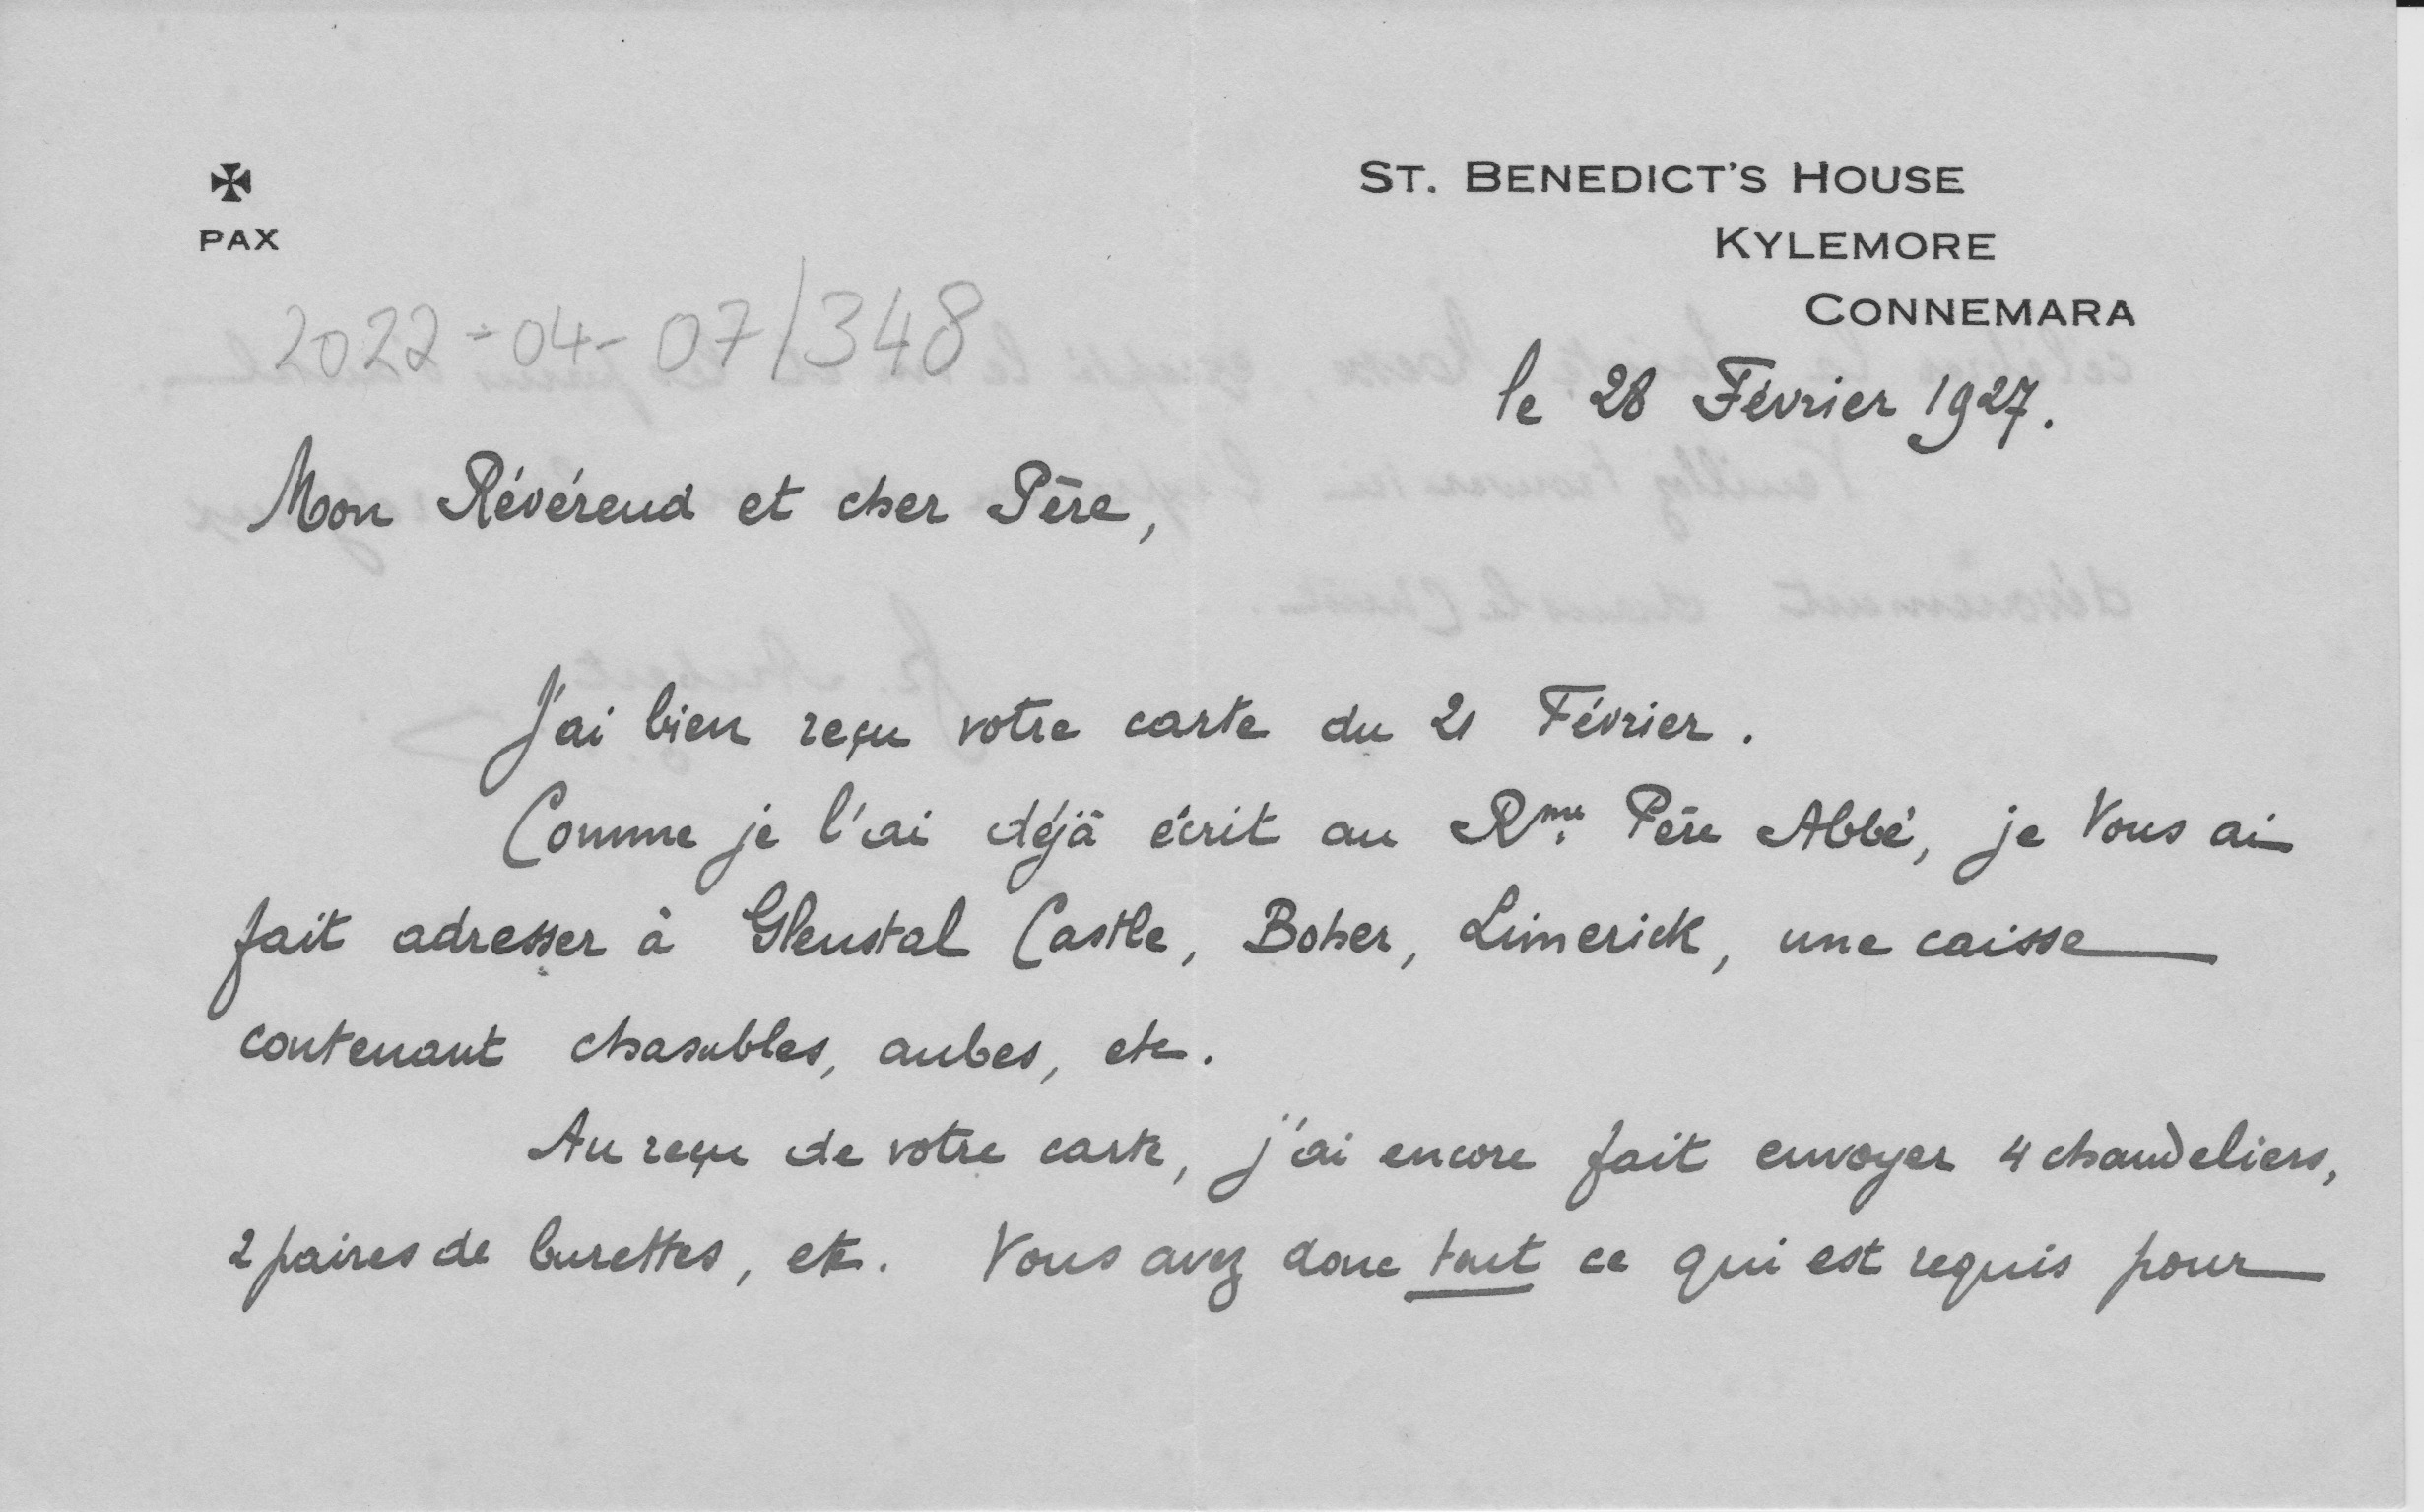 ✠
PAX
ST. BENEDICT'S HOUSE
KYLEMORE
CONNEMARA
2022-04-07/348
le 28 Février 1927.
Mon Révérend et cher Père,
J'ai bien reçu votre carte du 21 Février.
Comme je l'ai déjà écrit au Rme Père Abbé, je Vous ai
fait adresser à Glenstal Castle, Boher, Limerick, une caisse
contenant chasubles, aubes, etc.
Au reçu de votre carte, j'ai encore fait envoyer 4 chandeliers,
2 paires de burettes, etc. Vous avez donc tout ce qui est requis pour